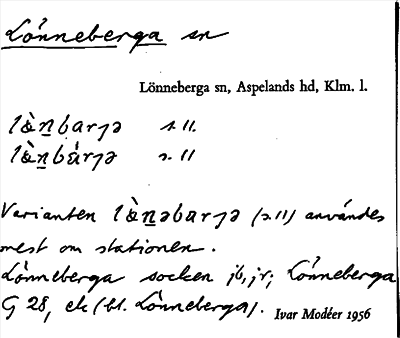 Lönneberga sn
Lönneberga sn, Aspelands hd, Klm. l.
læ̀n̲barȷə s. 11.
læ̀n̲bárȷə s. 11
Varianten læ̀n̲əbarȷə (s. 11) användes
mest om stationen.
Lönneberga socken jb, jr; Lönneberga
G 28, ek (bl. Lönneberga).
Ivar Modéer 1956